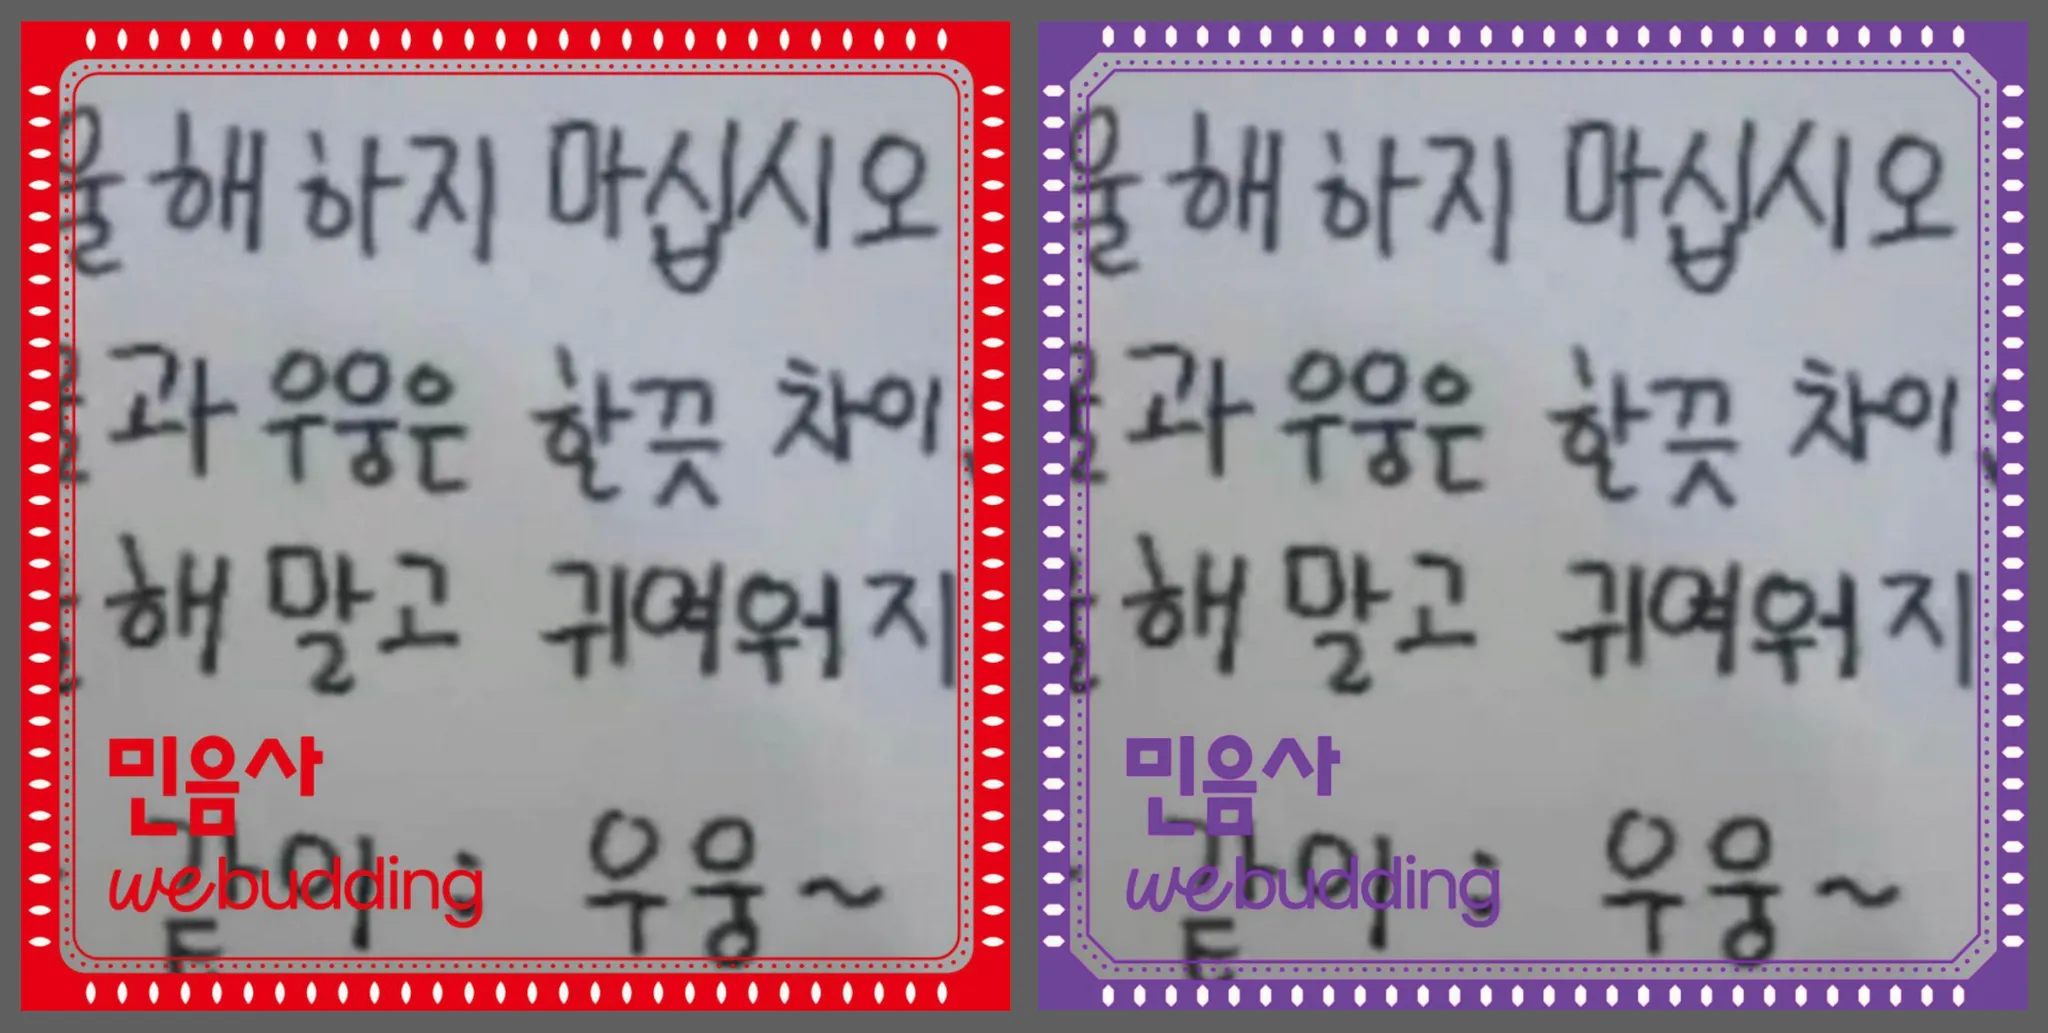 울해하지 마십시오
과 우웅은 한끗 차이
해 말고 귀여워지
민음사
webudding
우웅~
울해하지 마십시오
과 우웅은 한끗 차이
해 말고 귀여워지
민음사
webudding
우웅~